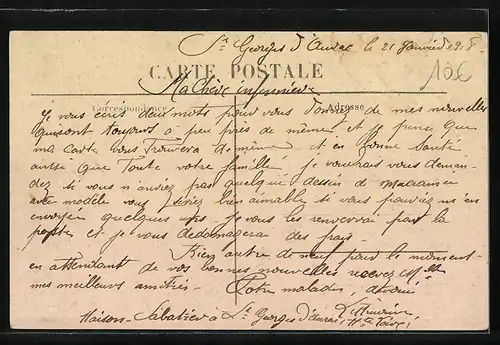 St Georges d'Aurac le 21 Janvier 191
10€
CARTE POSTALE
Ma Chère infirmière
Correspondance Adresse
Je vous écris deux mots pour vous donner de mes nouvelles
qui sont toujours à peu près de même et je pense que
ma carte vous trouvera de même et en bonne santé
ainsi que toute votre famille je voudrais vous deman-
dez si vous n'auriez pas quelque dessin de Macramé
avec modèle vous seriez bien aimable si vous pouviez m'en
envoyer quelques uns je vous les renverrai par la
poste et je vous dedomagerai des frais
Rien autre de neuf pour le moment
en attendant de vos bonnes nouvelles recevez
mes meilleurs amitiés Votre malade, dévoué
Maison Sabatier à St Georges d'Aurac, Hte Loire